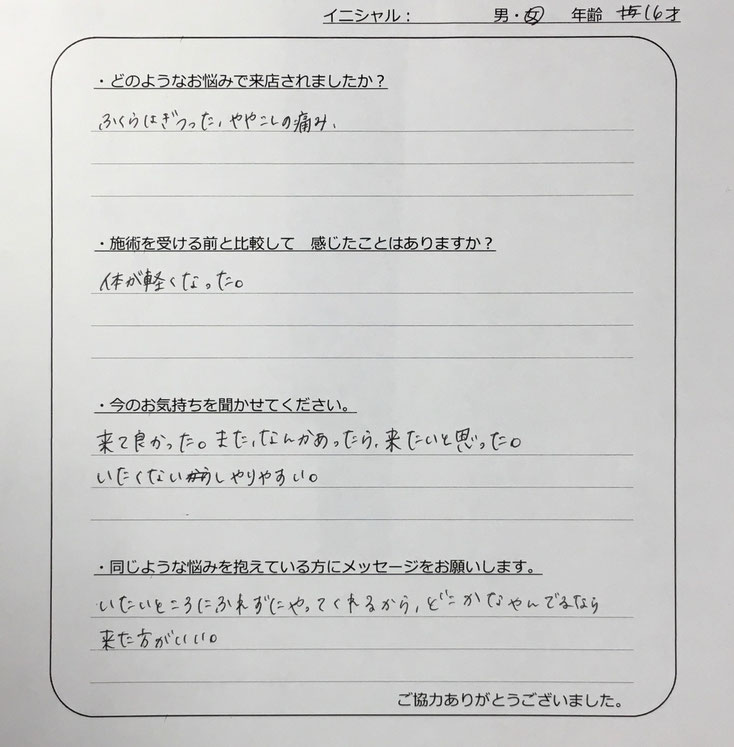 イニシャル： 男・女 年齢 16才
・どのようなお悩みで来店されましたか？
ふくらはぎつった、ややこしの痛み、
・施術を受ける前と比較して　感じたことはありますか？
体が軽くなった。
・今のお気持ちを聞かせてください。
来て良かった。また、なんかあったら、来たいと思った。
いたくないしやりやすい。
・同じような悩みを抱えている方にメッセージをお願いします。
いたいところにふれずにやってくれるから、どこかなやんでるなら
来た方がいい。
ご協力ありがとうございました。